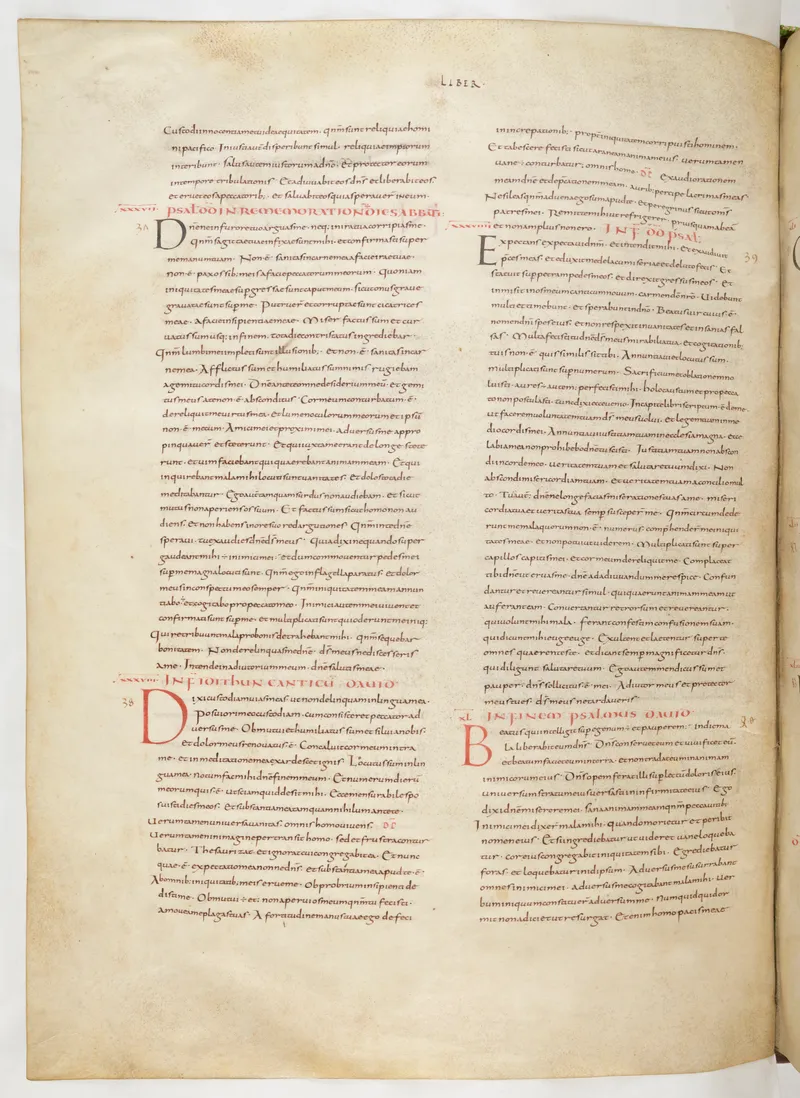 LIBER·
Custodi innocentiam et uide aequitatem· qnm sunt reliquiae homi
ni pacifico· Iniusti aut disperibunt simul· reliquiae impiorum
interibunt· salus autem iustorum a dno· Et protector eorum
in tempore tribulationis· Et adiuuabit eos dns et liberabit eos·
et eruet eos a peccatorib; et saluabit eos quia sperauer in eum·
XXXVII PSAL DD IN REMEMORATIONE DIE SABBATI
38 Dne ne in furore tuo arguas me· neq; in ira tua corripias me·
Qnm sagittae tuae infixae sunt mihi· et confirmasti super
me manum tuam· Non ē sanitas in carne mea a facie irae tuae·
non ē pax ossib; meis a facie peccatorum meorum· Quoniam
iniquitates meae supgressae sunt caput meum· sicut onus graue
grauatae sunt sup me· Putruer et corruptae sunt cicatrices
meae· a facie insipientiae meae· Miser factus sum et cur
uatus sum usq; in finem· tota die contristatus ingrediebar·
Qnm lumbi mei impleti sunt illusionib; et non ē sanitas in car
ne mea· Afflictus sum et humiliatus sum nimis rugiebam
a gemitu cordis mei· Dne ante te omne desiderium meū· et gemi
tus meus a te non ē absconditus· Cor meum conturbatum ē·
dereliquit me uirtus mea· et lumen oculorum meorum et ipsū
non ē mecum· Amici mei et proximi mei· aduersus me appro
pinquauer et steterunt· Et qui iuxta me erant de longe stete
runt· et uim faciebant qui quaerebant animam meam· Et qui
inquirebant mala mihi locuti sunt uanitates· et dolos tota die
meditabantur· Ego autem tamquam surdus non audiebam· et sicut
mutus non aperiens os suum· Et factus sum sicut homo non au
diens· et non habens in ore suo redargutiones· Qnm in te dne
speraui· tu exaudies dne ds meus· Quia dixi nequando super
gaudeant mihi inimici mei· et dum commouentur pedes mei
sup me magna locuti sunt· Qnm ego in flagella paratus· et dolor
meus in conspectu meo semper· Qnm iniquitatem meam annun
tiabo· et cogitabo pro peccato meo· Inimici autem mei uiuent et
confirmati sunt sup me· et multiplicati sunt qui oderunt me iniq;
Qui retribuunt mala pro bonis detrahebant mihi· qnm sequebar
bonitatem· Non derelinquas me dne ds meus ne discesseris
a me· Intende in adiutorium meum· dne salutis meae·
XXXVIII IN F IDITHUN CANTICŪ DAUID
38 Dixi custodiam uias meas ut non delinquam in lingua mea·
Posui ori meo custodiam· cum consisteret peccator ad
uersus me· Obmutui et humiliatus sum et silui a bonis·
et dolor meus renouatus ē· Concaluit cor meum intra
me· et in meditatione mea exardescet ignis· Locutus sum in lin
gua mea· notum fac mihi dne finem meum· Et numerum dierū
meorum quis ē· ut sciam quid desit mihi· Ecce mensurabiles po
suisti dies meos· Et substantia mea tamquam nihilum ante te·
uerumtamen uniuersa uanitas· omnis homo uiuens·
Uerumtamen in imagine pertransit homo· sed et frustra contur
batur· Thesaurizat et ignorat cui congregabit ea· Et nunc
quae ē expectatio mea nonne dns· et substantia mea apud te ē·
Ab omnib; iniquitatib; meis erue me· Obprobrium insipienti de
disti me· Obmutui et non aperui os meum qnm tu fecisti·
amoue a me plagas tuas· A fortitudine manus tuae ego defeci
in increpationib; propt iniquitatem corripuisti hominem·
Et tabescere fecisti sicut araneam animam eius· uerumtamen
uane conturbatur· omnis homo· Exaudi orationem
meam dne et deprecationem meam· auribus percipe lacrimas meas
Ne sileas qnm aduena ego sum apud te· et peregrinus sicut oms
patres mei· Remitte mihi ut refrigerer· prius quam abeam
XXXVIIII et non amplius non ero· IN F DD PSAL·
Expectans expectaui dnm· et intendit mihi· Et exaudiuit 39
preces meas· et eduxit me de lacu miseriae et de luto fecis· Et
statuit supper tram pedes meos· et direxit gressus meos· Et
inmisit in os meum canticum nouum· carmen do nro· Uidebunt
multi et timebunt· et sperabunt in dno· Beatus uir cuius ē
nomen dni spes eius· et non respexit in uanitates et insanias fal
sas· Multa fecisti tu dne ds meus mirabilia tua· et cogitationib;
tuis non ē quis similis sit tibi· Annuntiaui et locutus sum·
multiplicati sunt sup numerum· Sacrificium et oblationem no
luisti· aures autem perfecisti mihi· holocaustum et pro pecca
to non postulasti· tunc dixi ecce uenio· In capite libri scriptum ē de me·
ut facerem uoluntatem tuam ds meus uolui· et legem tuam in me
dio cordis mei· Annuntiaui iustitiam tuam in ecclesia magna· ecce
labia mea non prohibebo dne tu scisti· Iustitiam tuam non abscon
di in corde meo· ueritatem tuam et salutare tuum dixi· Non
abscondi misericordiam tuam· et ueritatem tuam a concilio mul
to· Tu aut dne ne longe facias miserationes tuas a me· miseri
cordia tua et ueritas tua semp susceper me· Qnm circumdede
runt me mala quorum non ē numerus· comphender me iniqui
tates meae· et non potui ut uiderem· Multiplicatae sunt super
capillos capitis mei· et cor meum dereliquit me· Complaceat
tibi dne ut eruas me· dne ad adiuuandum me respice· Confun
dantur et reuereantur simul· qui quaerunt animam meam ut
auferant eam· Conuertantur retrorsum et reuereantur·
qui uolunt mihi mala· ferant confestim confusionem suam·
qui dicunt mihi euge euge· Exultent et laetentur super te
omnes quaerentes te· et dicant semp magnificetur dns·
qui diligunt salutare tuum· Ego autem mendicus sum et
pauper· dns sollicitus ē mei· Adiutor meus et protector
meus tu es· ds meus ne tardaueris·
XL IN FINEM PSALMUS DAUID
Beatus qui intellegit sup egenum et pauperem· in die ma
la liberabit eum dns· Dns conseruet eum et uiuificet eū·
et beatum faciat eum in terra· et non tradat eum in animam
inimicorum eius· Dns opem ferat illi sup lectū doloris eius
uniuersum stratum eius uersasti in infirmitate eius· Ego
dixi dne miserere mei· sana animam meam qnm peccaui tibi
Inimici mei dixer mala mihi· quando morietur et peribit
nomen eius· Et si ingrediebatur ut uideret uane loqueba
tur· cor eius congregabit iniquitatem sibi· Egrediebatur
foras· et loquebatur in id ipsum· Aduersus me susurrabant
omnes inimici mei· aduersus me cogitabant mala mihi· Uer
bum iniquum constituer aduersum me· numquid qui dor
mit non adiciet ut resurgat· Etenim homo pacis meae